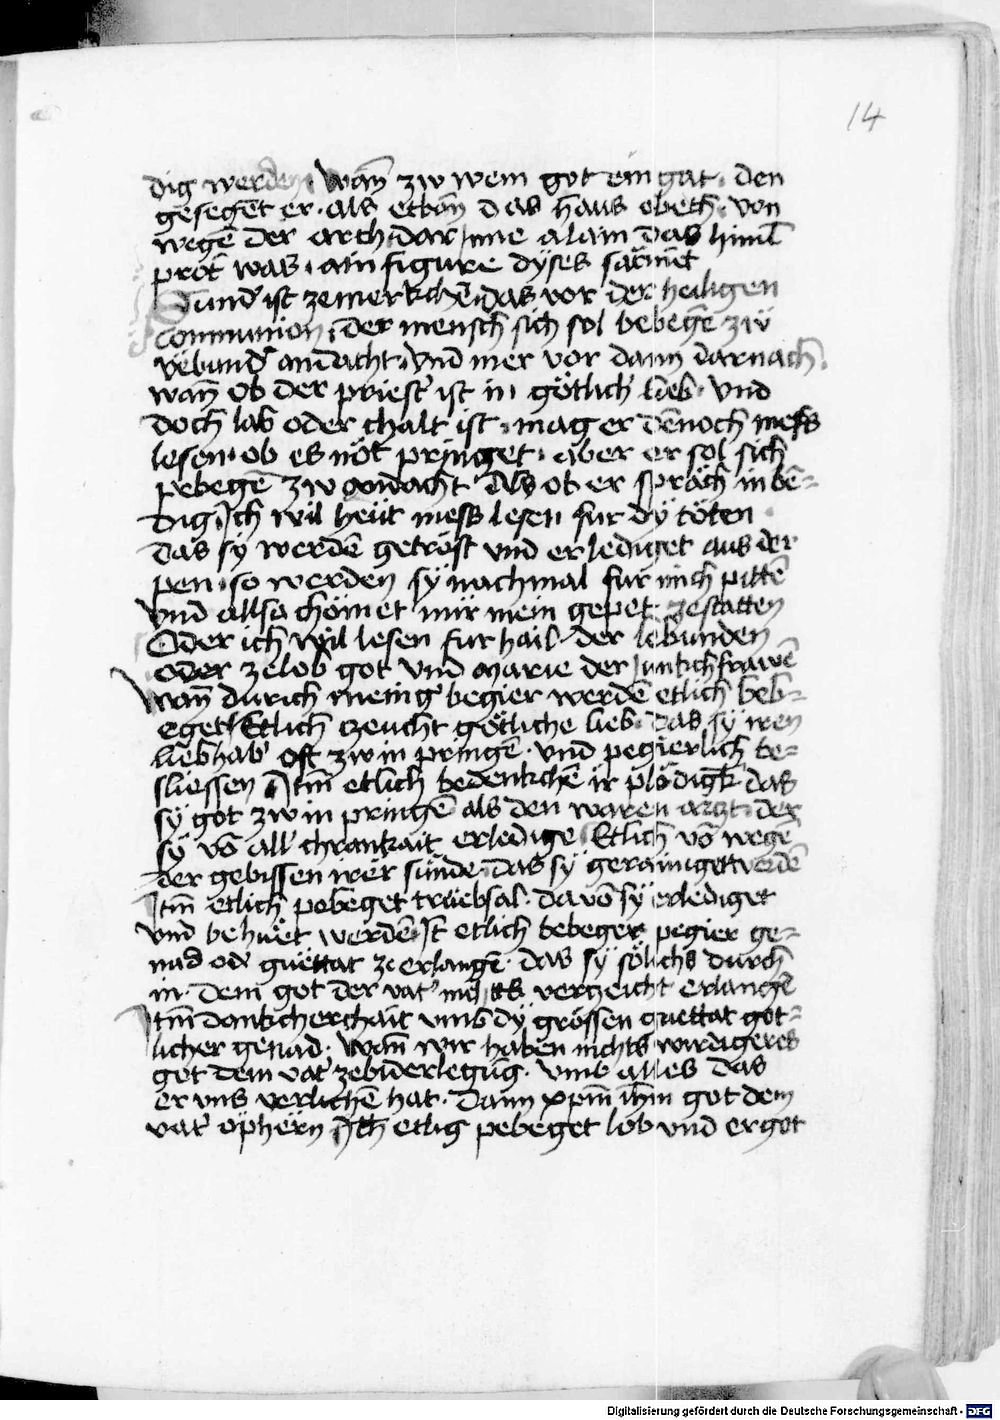 14
dig werden · Wañ zw wem got ein gat · den
gesegēt er · als etbañ das haus obeth · von
wegē der arch · dar jnne alain das himl̄
prot̄ was · ain figure dyses sacm̄et
Sund' ist zemerkchē das vor der heiligen
communion · der mensch sich sol bebegē zw
vebund' andacht · Vnd mer vor dann darnach ·
wañ ob der priest' ist in götlich' lieb · Vnd
doch lab oder chalt ist · mag er dēnoch mess
lesen · ob es nöt pringet · aber er sol sich
pebegē zw andacht Als ob er spräch inbē=
dig Ich wil heüt mess lesen fur dy töten
das sy werdē getröst vnd erlediget aus der
pen · so werden sy nachmal fur mich pittē
Vnd allso chömet mir mein gepet zestatten
Oder ich wil lesen fur hail der lebunden
oder zelob got vnd Marie der junkchfrawē
Wañ durich mening' begier werdē etlich beb=
eget Etlich czeucht götliche lieb · das sy iren
liebhab' oft zw in pringē · vnd pegierlich be=
sliessen Itm̄ etlich bedenkchē ir plödigk' das
sy got zw in pringē als den waren arczt · der
sy vō all' chrankait erledige Etlich vō wegē
der gebissen irer sünde · das sy gerainiget werdē
Itm̄ etlich pebeget trüebsal · da vō sy erlediget
vnd behüet werdē It̄ etlich bebeget pegier ge=
nad od' guettat ze erlangē · das sy sölichs durch
in · dem got der vat' nichts verczeicht erlangē
Itm̄ dankcherchait vmb dy grössen guettat göt=
licher genad · Wañ wir haben nichts wirdigeres
got dem vat' zebiderlegūg · vmb alles das
er vns verlichē hat · Dann xpm̄ ihm̄ got dem
vat' öphern Itm̄ etlig pebeget lob vnd er got
Digitalisierung gefördert durch die Deutsche Forschungsgemeinschaft - DFG